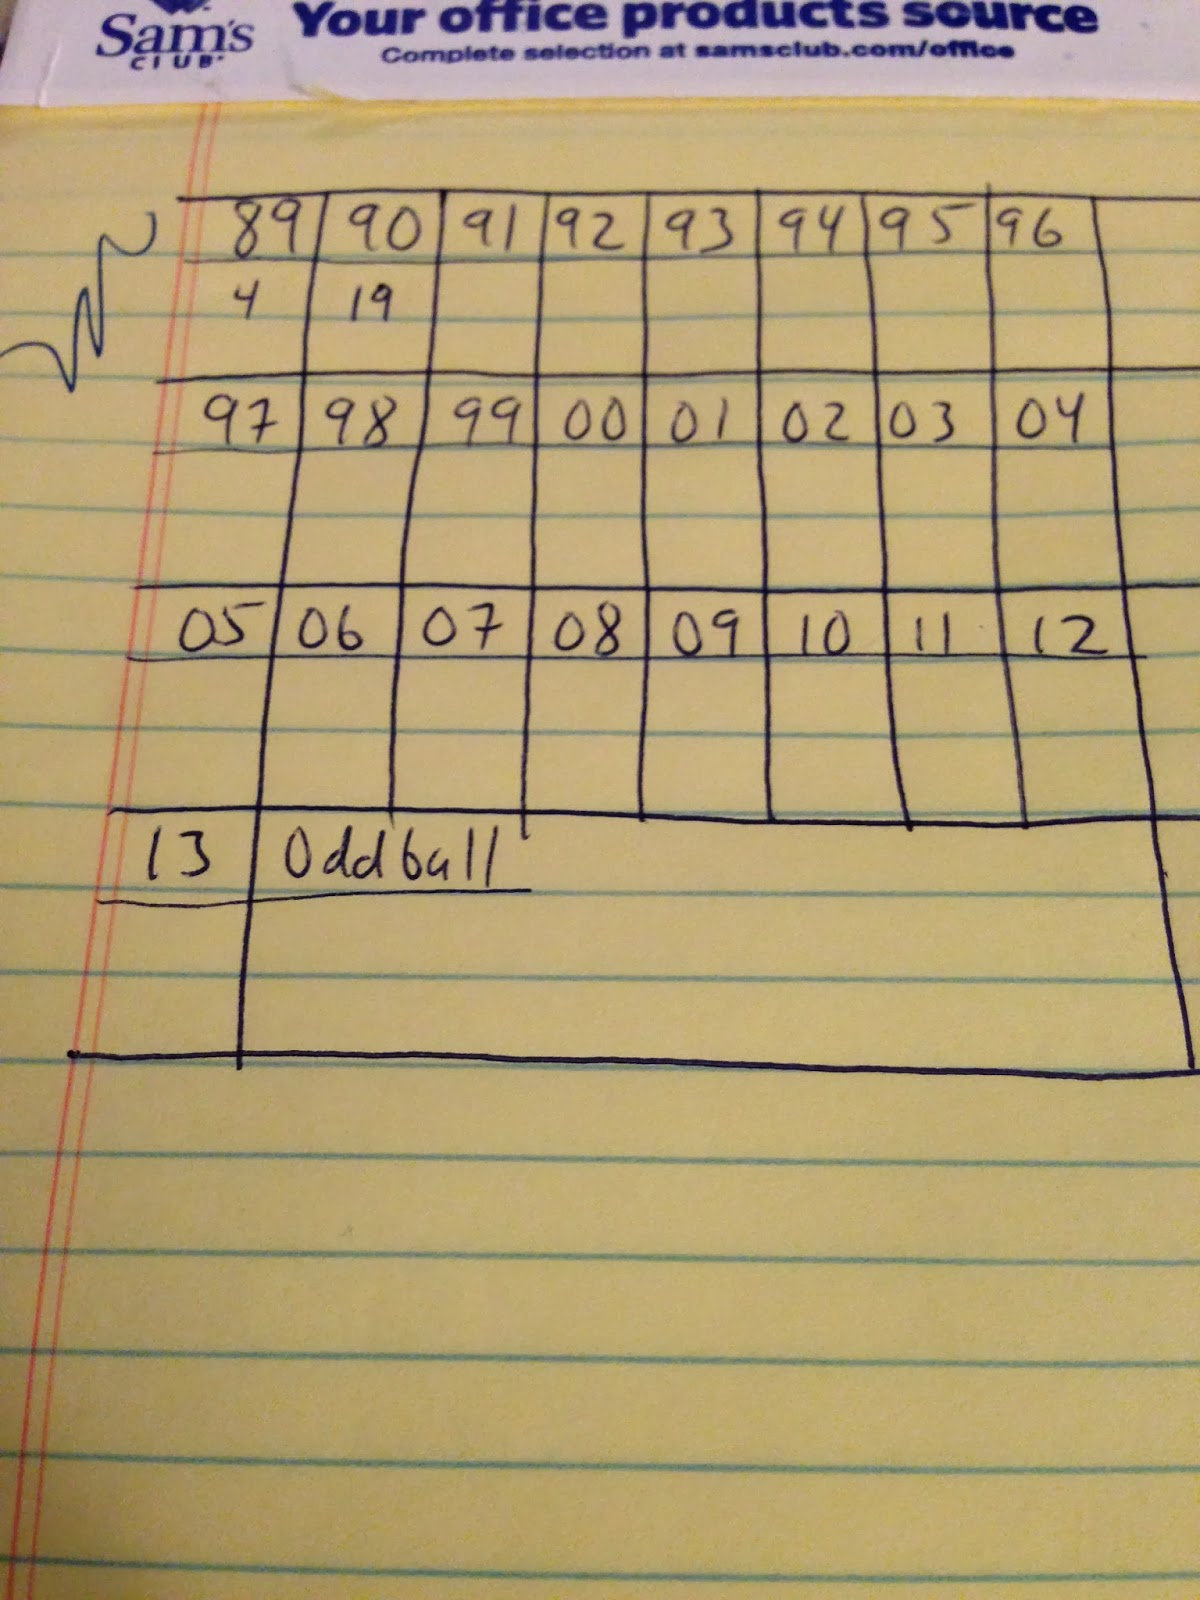 Sam's CLUB Your office products source
Complete selection at samsclub.com/office
89 90 91 92 93 94 95 96
4 19
97 98 99 00 01 02 03 04
05 06 07 08 09 10 11 12
13 Oddball